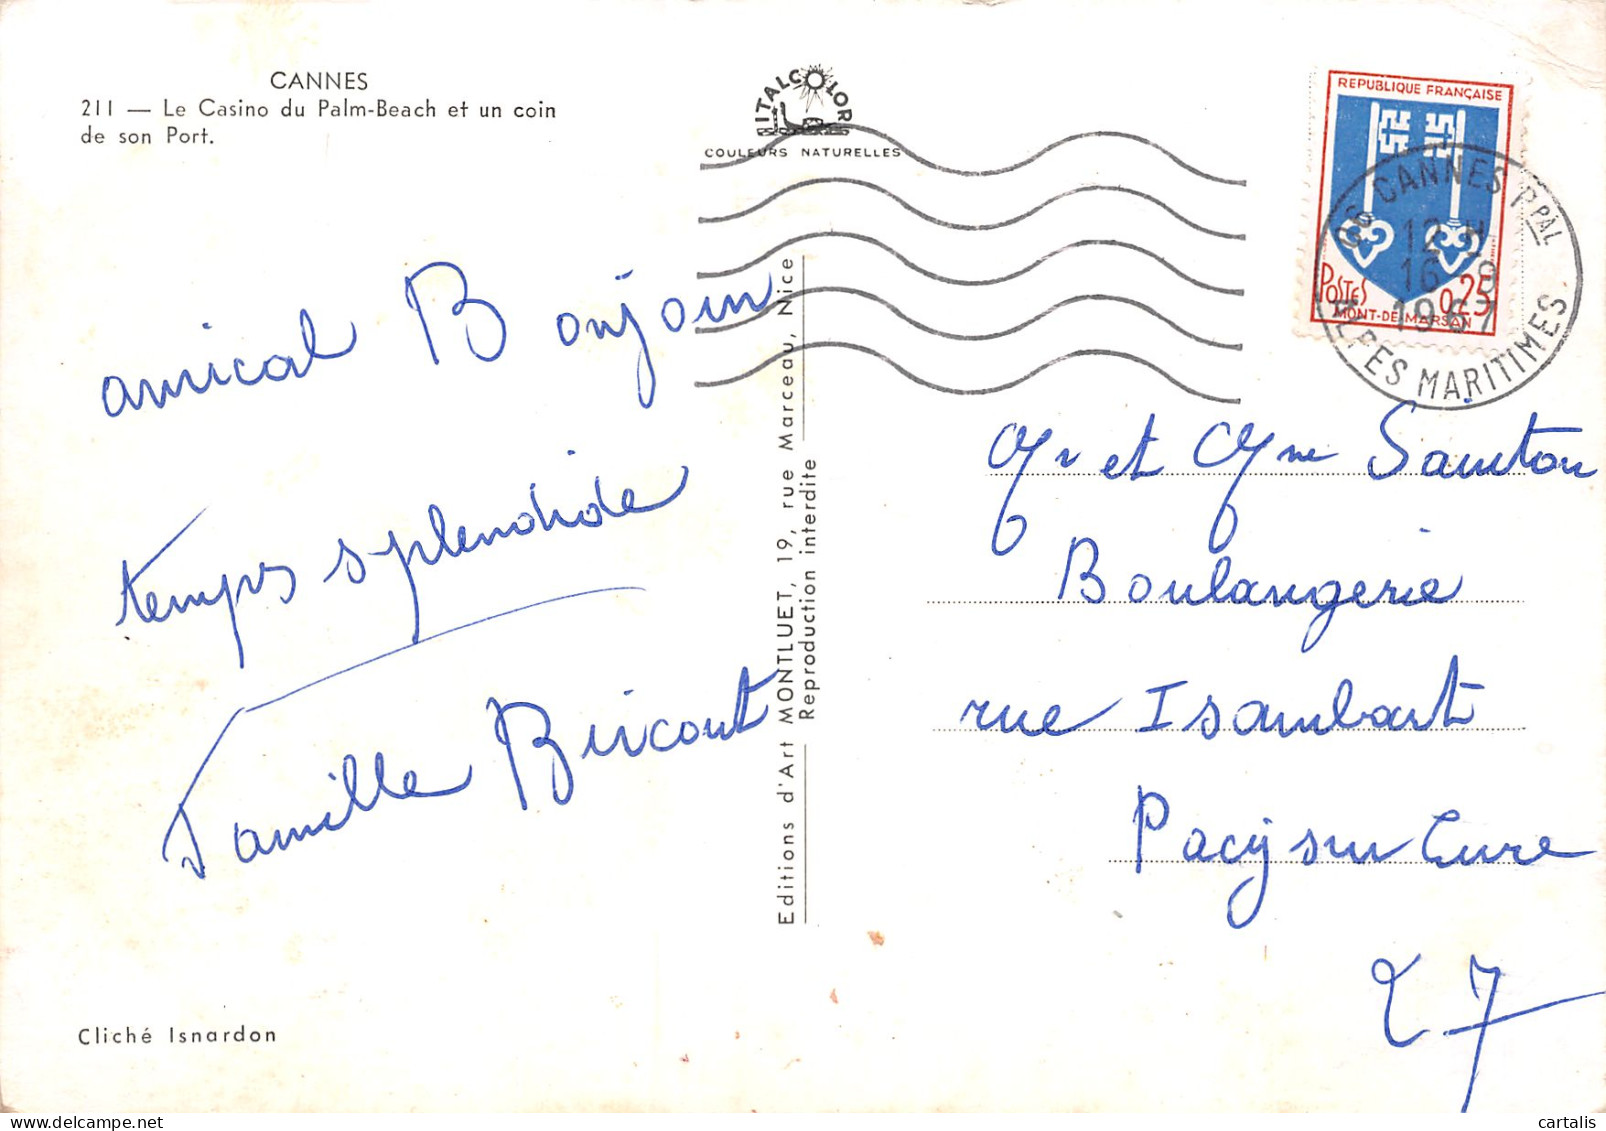 CANNES
211 — Le Casino du Palm-Beach et un coin
de son Port.
amical Bonjour
temps splendide
Famille Bircout
Cliché Isnardon
ITALCOLOR
COULEURS NATURELLES
Editions d'Art MONTLUET, 19, rue Marceau, Nice
Reproduction interdite
REPUBLIQUE FRANÇAISE
POSTES 0,25
MONT-DE-MARSAN
06 CANNES PPAL
12 H
16 - 9
1967
ALPES MARITIMES
Mr et Mme Sainton
Boulangerie
rue Isambart
Pacy sur Eure
27
cartalis
delcampe.net